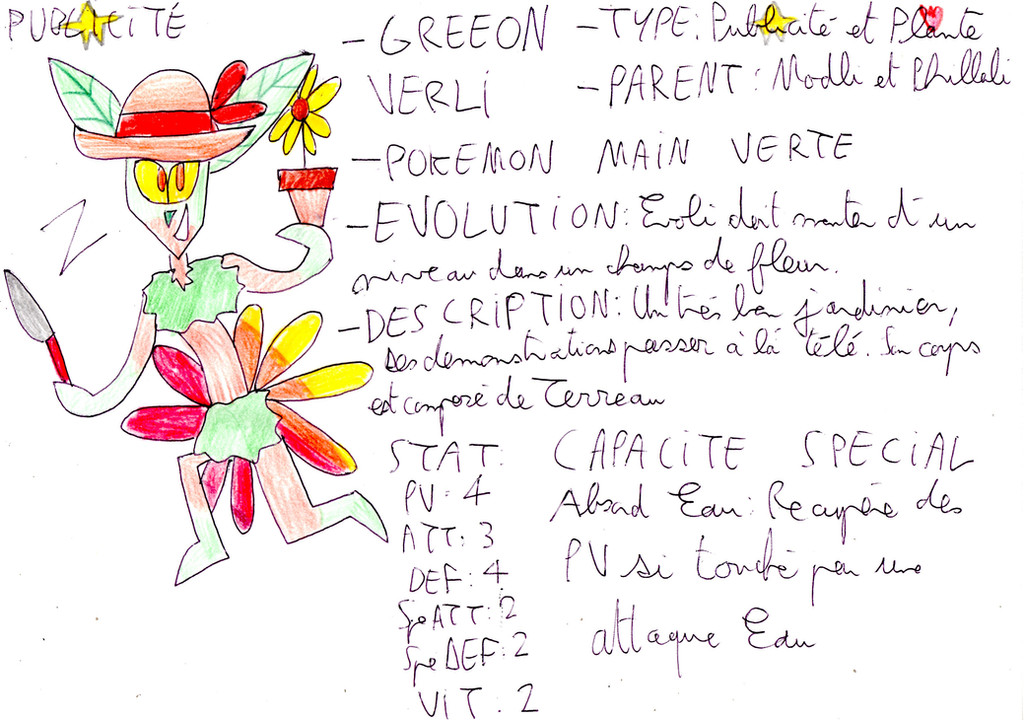 PUBLICITÉ
- GREEON
VERLI
- TYPE: Publicité et Plante
- PARENT: Modli et Phillali
- POKEMON MAIN VERTE
- EVOLUTION: Evoli doit monter d'un
niveau dans un champs de fleur.
- DESCRIPTION: Un très bon jardinier,
ses demonstrations passer à la télé. Son corps
est composé de Terreau
STAT:
PV: 4
ATT: 3
DEF: 4
SpeATT: 2
SpeDEF: 2
ViT: 2
CAPACITE SPECIAL
Absord Eau: Recupère des
PV si touché par une
attaque Eau